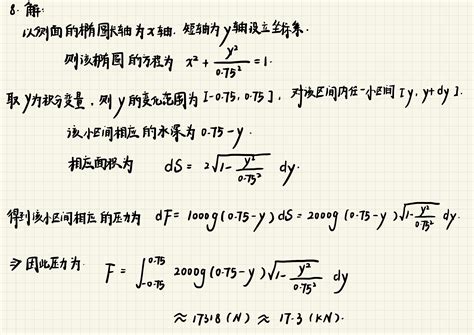 8. 解:
以侧面的椭圆长轴为 x 轴. 短轴为 y 轴设立坐标系.
则该椭圆的方程为 x² + y²/0.75² = 1.
取 y为积分变量, 则 y 的变化范围为 [-0.75, 0.75], 对该区间内任一小区间 [y, y+dy].
该小区间相应的水深为 0.75-y.
相应面积为 dS = 2√(1-y²/0.75²) dy.
得到该小区间相应的压力为 dF = 1000g(0.75-y)dS = 2000g(0.75-y)√(1-y²/0.75²) dy.
⇒ 因此压力为 F = ∫_{-0.75}^{0.75} 2000g(0.75-y)√(1-y²/0.75²) dy
≈ 17318 (N) ≈ 17.3 (kN).